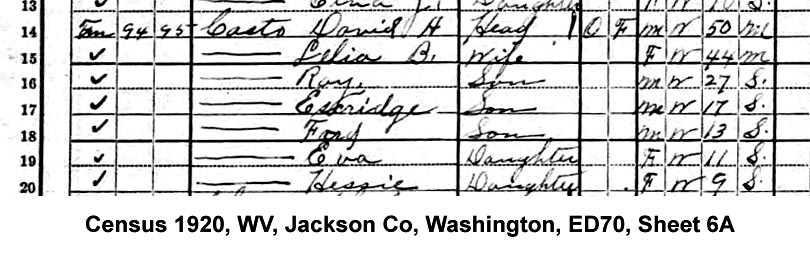 13 Daughter
14 Fm 94 95 Casto David H Head 1 O F m W 50 m
15 ✓ —— Lelia B. Wife F W 44 m
16 ✓ —— Roy. Son m W 27 S.
17 ✓ —— Eskridge Son m W 17 S.
18 ✓ —— Son m W 13 S.
19 ✓ —— Eva Daughter F W 11 S.
20 ✓ —— Hessie Daughter F W 9 S.
Census 1920, WV, Jackson Co, Washington, ED70, Sheet 6A